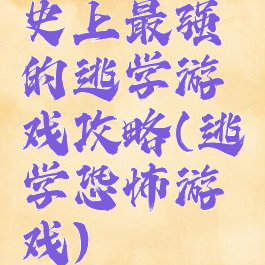 史上最强
的逃学游
戏攻略(逃
学恐怖游
戏)